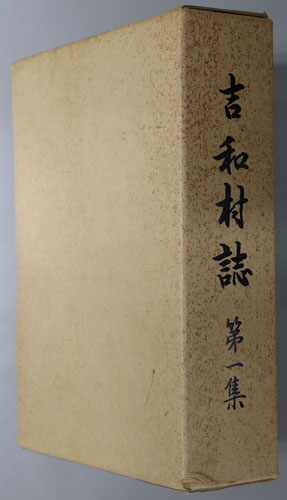 吉和村誌 第一集